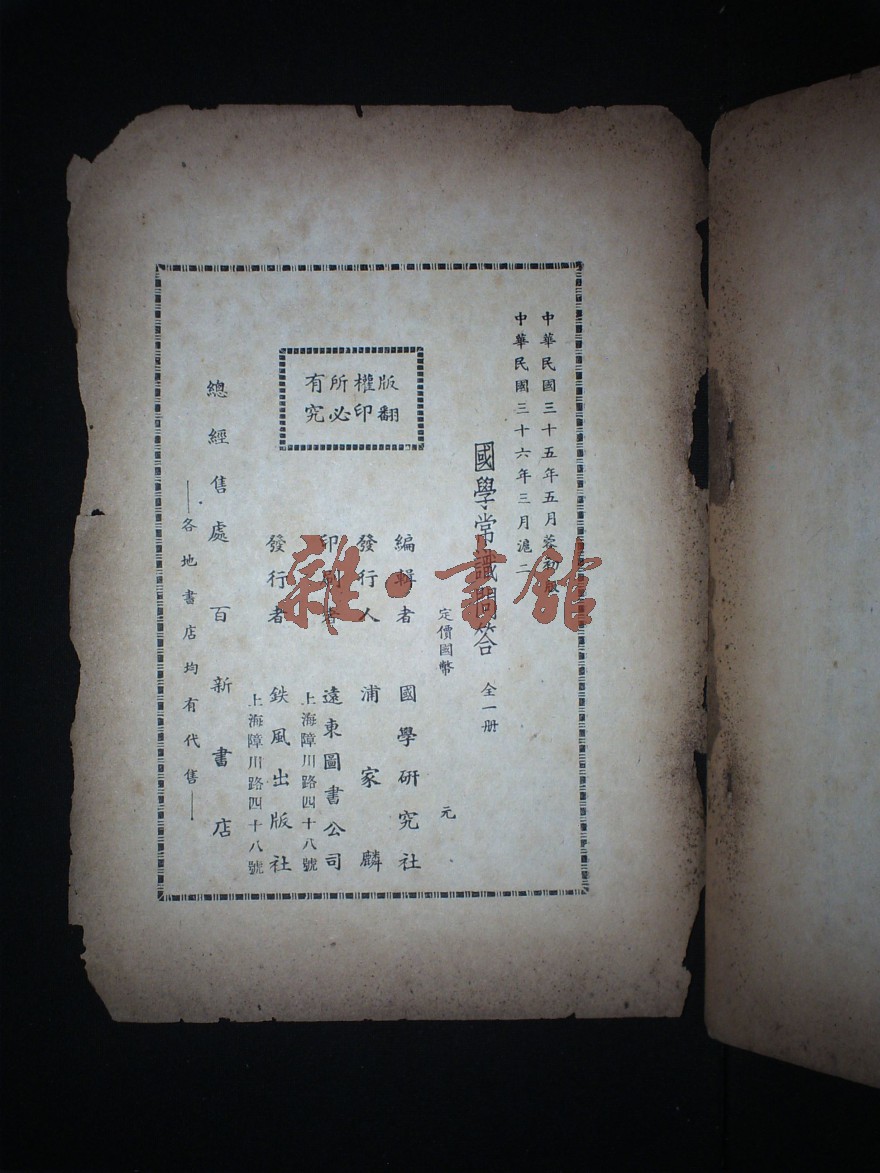 中華民國三十五年五月蓉初版
中華民國三十六年三月滬二
國學常識問答 全一册
定價國幣 元
編輯者 國學研究社
發行人 浦家麟
印刷者 遠東圖書公司
上海障川路四十八號
發行者 鉄風出版社
上海障川路四十八號
版權所有
翻印必究
總經售處 百新書店
——各地書店均有代售——
雜·書館